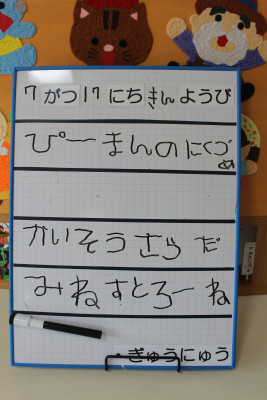 7がつ17にちきんようび
ぴーまんのにくづめ
かいそうさらだ
みねすとろーね
・ぎゅうにゅう